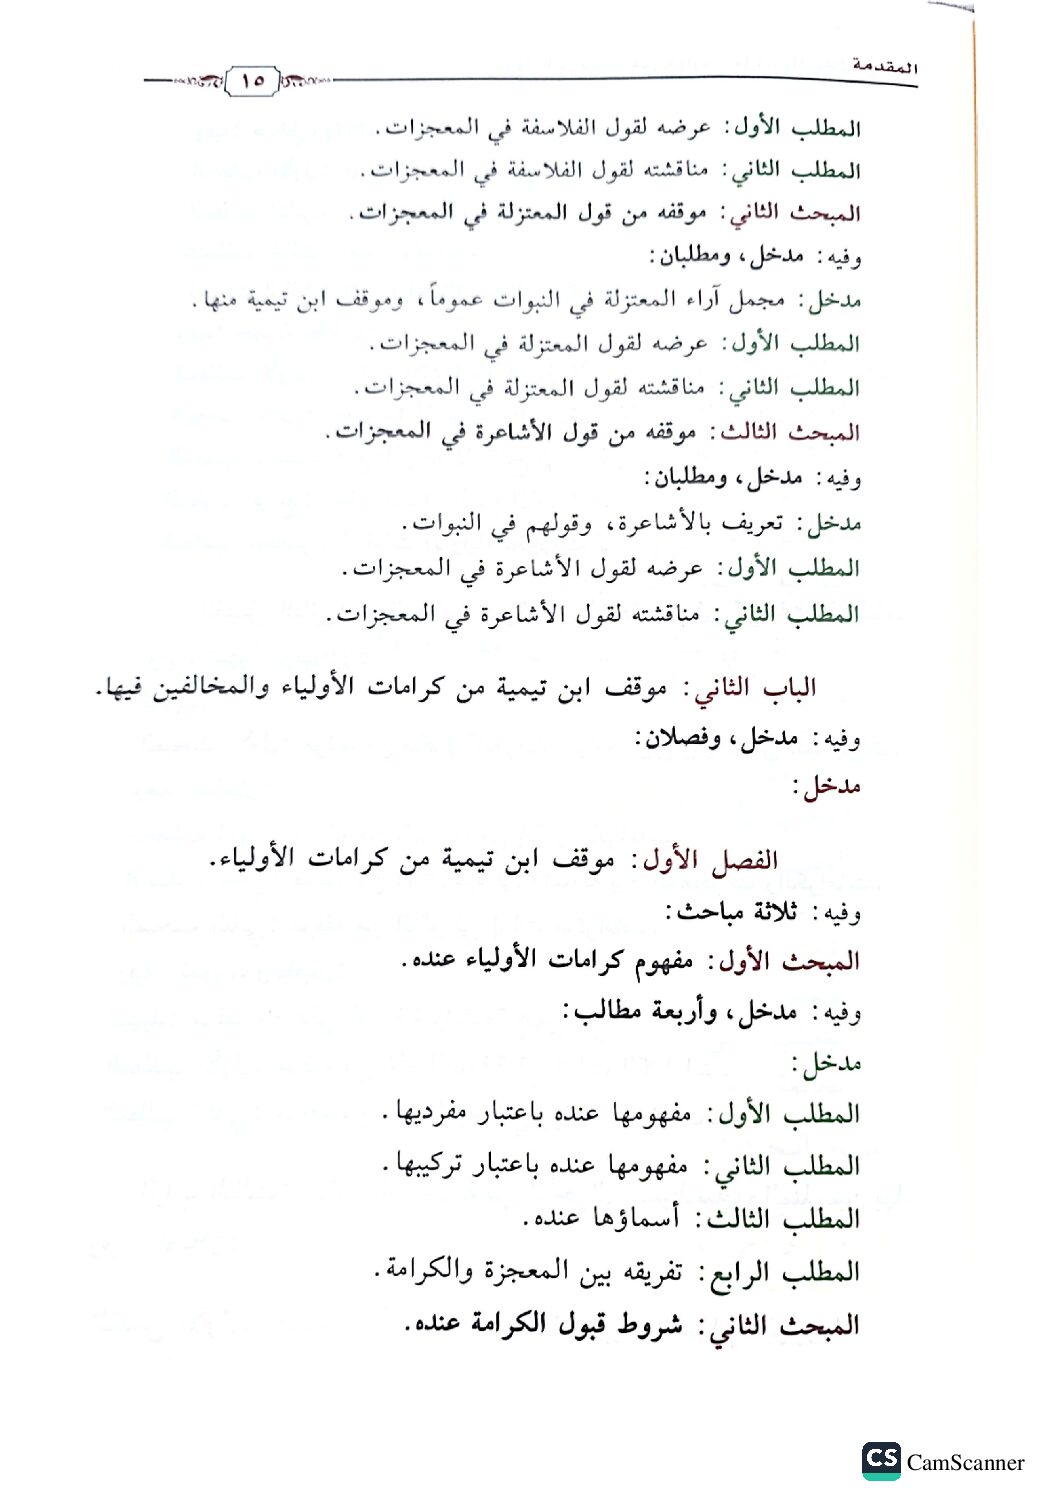 المقدمة
١٥
المطلب الأول: عرضه لقول الفلاسفة في المعجزات.
المطلب الثاني: مناقشته لقول الفلاسفة في المعجزات.
المبحث الثاني: موقفه من قول المعتزلة في المعجزات.
وفيه: مدخل، ومطلبان:
مدخل: مجمل آراء المعتزلة في النبوات عموماً، وموقف ابن تيمية منها.
المطلب الأول: عرضه لقول المعتزلة في المعجزات.
المطلب الثاني: مناقشته لقول المعتزلة في المعجزات.
المبحث الثالث: موقفه من قول الأشاعرة في المعجزات.
وفيه: مدخل، ومطلبان:
مدخل: تعريف بالأشاعرة، وقولهم في النبوات.
المطلب الأول: عرضه لقول الأشاعرة في المعجزات.
المطلب الثاني: مناقشته لقول الأشاعرة في المعجزات.
الباب الثاني: موقف ابن تيمية من كرامات الأولياء والمخالفين فيها.
وفيه: مدخل، وفصلان:
مدخل:
الفصل الأول: موقف ابن تيمية من كرامات الأولياء.
وفيه: ثلاثة مباحث:
المبحث الأول: مفهوم كرامات الأولياء عنده.
وفيه: مدخل، وأربعة مطالب:
مدخل:
المطلب الأول: مفهومها عنده باعتبار مفرديها.
المطلب الثاني: مفهومها عنده باعتبار تركيبها.
المطلب الثالث: أسماؤها عنده.
المطلب الرابع: تفريقه بين المعجزة والكرامة.
المبحث الثاني: شروط قبول الكرامة عنده.
CS CamScanner